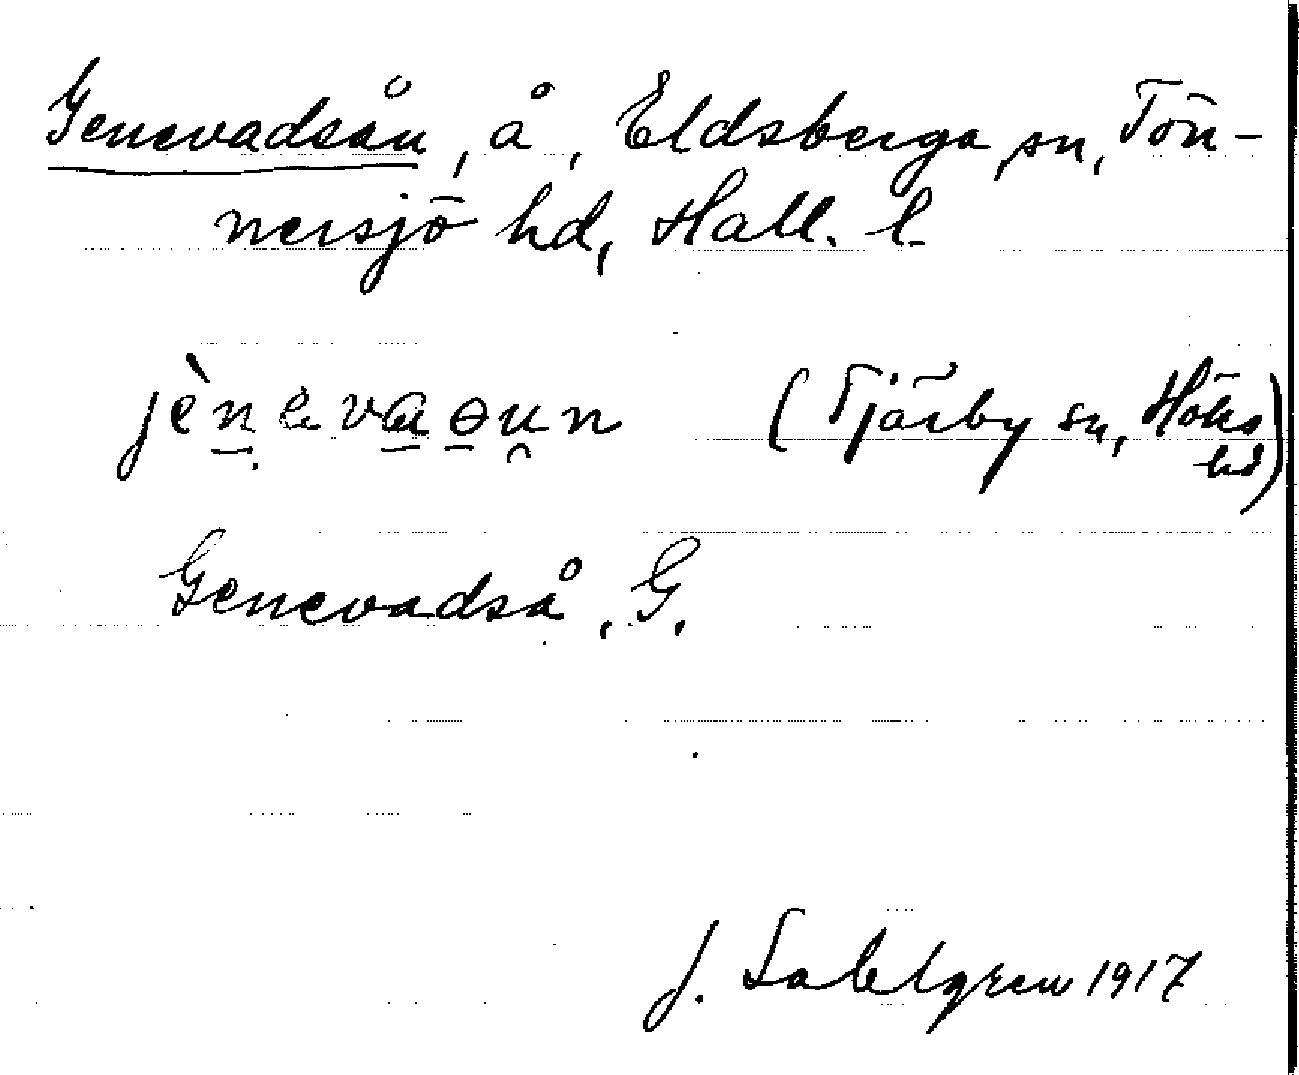 Genevadsån, å, Eldsberga sn, Tön-
nersjö hd, Hall. l.
jènevaɵun (Tjärby sn, Höks
hd)
Genevadså, G.
J. Sahlgren 1917